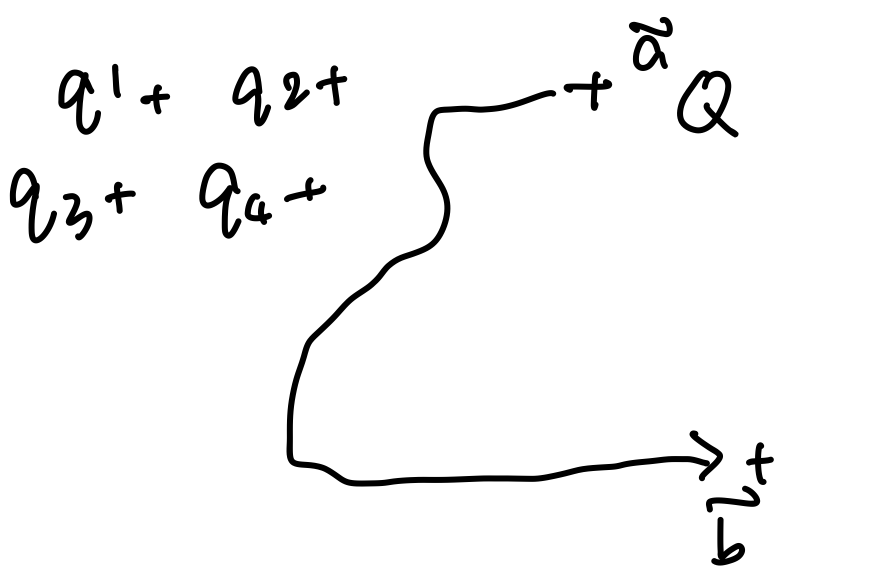 q1+ q2+
q3+ q4+
+ ã Q
+
b̃